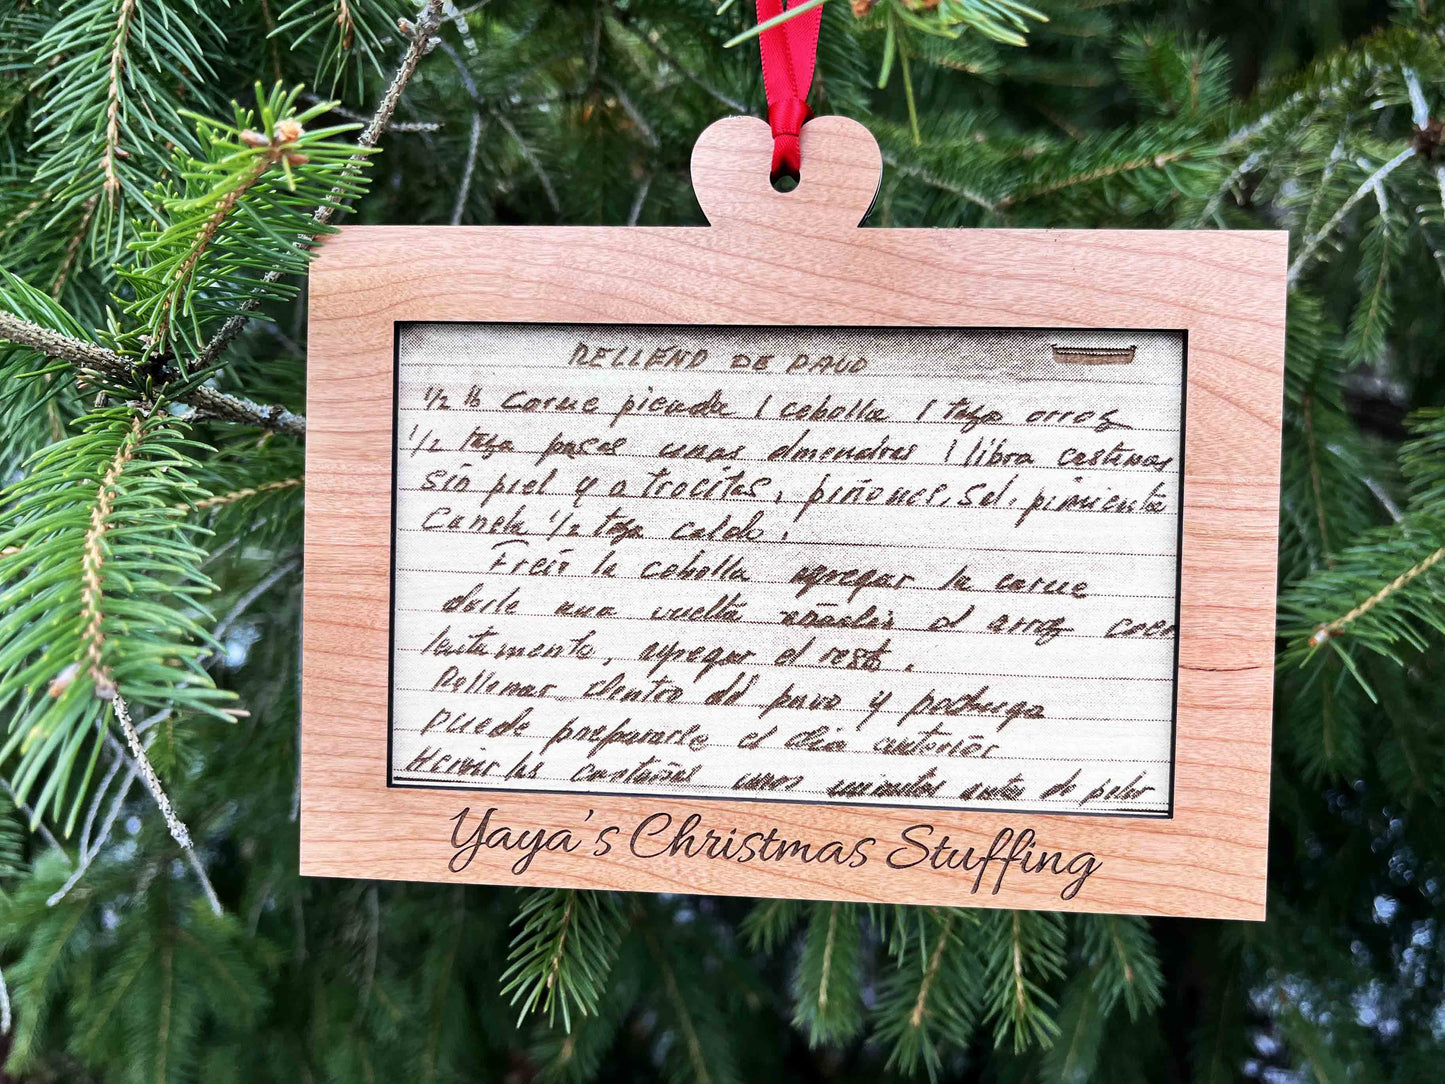 RELLENO DE PAVO
1/2 lb carne picada 1 cebolla 1 taza arroz
1/2 taza pasas unas almendras 1 libra castañas
sin piel y a trocitas, piñones, sal, pimienta
Canela 1/2 taza caldo.
Freír la cebolla agregar la carne
darle una vuelta añadir el arroz cocer
lentamente, agregar el resto.
Rellenar dentro del pavo y pechuga
puede prepararse el dia anterior
Hervir las castañas unos minutos antes de pelar
Yaya's Christmas Stuffing